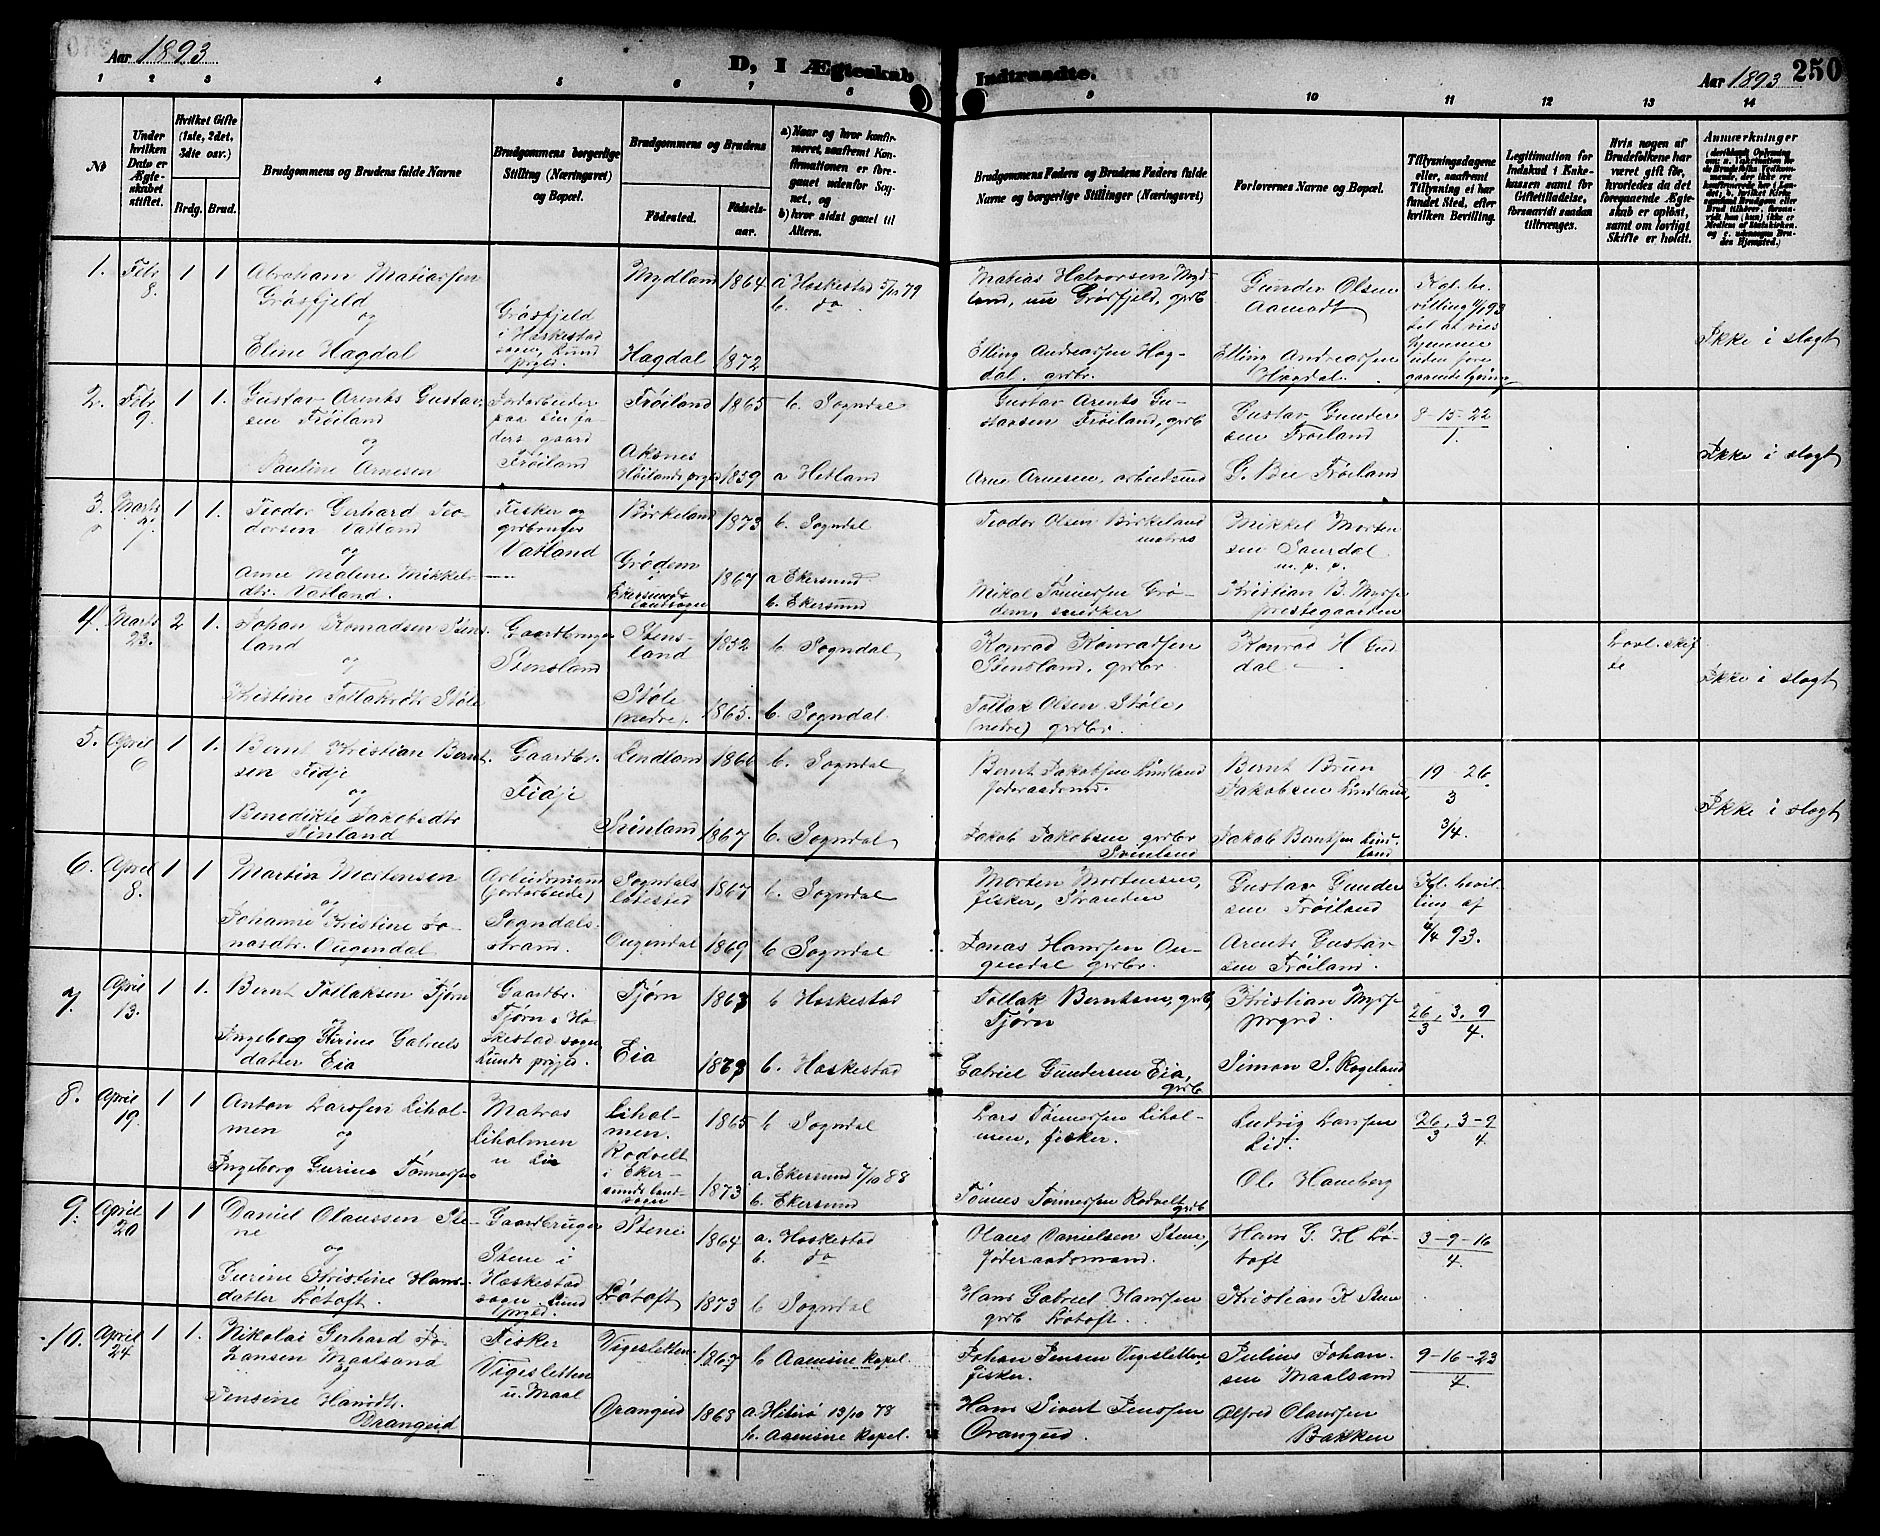 Aar 1893
D, I Ægteskab Indtraadte.
Aar 1893 250
1 2 3 4 5 6 7 8 9 10 11 12 13 14
No
Under hvilken Dato er Ægteskabet stiftet.
Hvilket Gifte (1ste, 2det, 3die osv.)
Brdg. Brud.
Brudgommens og Brudens fulde Navne
Brudgommens borgerlige Stilling (Næringsvei) og Bopæl.
Brudgommens og Brudens
Fødested.
Fødselsaar.
a) Naar og hvor konfirmeret, saafremt Konfirmationen er foregaaet udenfor Sognet, og
b) hvor sidst gaaet til Alters.
Brudgommens Faders og Brudens Faders fulde Navne og borgerlige Stillinger (Næringsvei)
Forlovernes Navne og Bopæl.
Tillysningsdagene eller, saafremt Tillysning ei har fundet Sted, efter hvilken Bevilling.
Legitimation for Indskud i Enkekassen samt for Giftetilladelse, forsaavidt saadan tiltrænges.
Hvis nogen af Brudefolkene har været gift før, hvorledes da det foregaaende Ægteskab er opløst, samt om lovligt Skifte er holdt.
Anmærkninger
1. Febr 8. 1 1
Abraham Matiassen
Grøsfjeld
og
Eline Hagdal
Grøsfjeld
i Heskestad
sogn, Lund
prgjld.
Mydland 1864 a Heskestad 5/10 79
b. do
Hagdal 1872
Matias Halvorsen Myd-
land, nu Grøsfjeld, grdb
Elling Andreassen Hag-
dal. grdbr.
Gunder Olsen
Aamodt
Elling Andreassen
Hagdal.
Kgl. be
villing 4/1 93
til at vies
hjemme
uden fore
gaaende lysning
Ikke i slægt
2. Febr 9. 1 1.
Gustav Arents Gustav
sen Frøiland
og
Pauline Arnesen
Jordarbeider
paa sin fa-
ders gaard
Frøiland
Frøiland 1865 b. Sogndal
Aksnes
Høilands prgjld 1859 a Hetland
Gustav Arents Gu-
stavsen Frøiland, grdb
Arne Arnesen, arbeidsmd
Gustav Gunder
sen Frøiland
G. Bee Frøiland
8-15-22
1.
Ikke i slægt
3. Marts 7. 1 1.
Teodor Gerhard Teo-
dorsen Vatland
og
Anne Malene Mikkels
dtr. Vatland.
Fisker og
grdbruger
Vatland
Birkeland 1873 b. Sogndal
Grødem
Ekersunds
landsogn 1867 a Ekersund
b. Ekersund
Teodor Olsen Birkeland
matros
Mikal Tønnessen Grø-
dem, snedker
Mikkel Morten
sen Saurdal
m. p. p.
Kristian B. Myrse
prestegaarden
4. Marts 23. 2 1.
Johan Konradsen Stens-
land
og
Kristine Tollaksdtr Støle
Gaardbruger
Stensland
Stens-
land 1852 b. Sogndal
Støle
(nedre). 1865. b. Sogndal.
Konrad Konradsen
Stensland, grdbr.
Tollak Olsen Støle,
(nedre) grdbr.
Konrad H
dal
Lovl. skif
te
Ikke i slægt
5. April 6 1 1.
Bernt Kristian Bernt
sen Fidje
og
Benedikte Jakobsdtr
Svinland
Gaardbr.
Fidje
Lindland 1866 b. Sogndal
Svinland 1867 b. Sogndal
Bernt Jakobsen Lindland
føderaadsmd.
Jakob Jakobsen grdbr
Svinland
Bernt Brun
Jakobsen Lindland,
Jakob Berntsen Lind-
land
19-26
3
3/4.
Ikke i slægt
6. April 8. 1 1
Martin Mortensen
og
Johanne Kristine Jo-
nasdtr. Ougendal
Arbeidsmand
(jordarbeide)
Sogndals-
strand.
Sogndals
ladested 1867 b. Sogndal
Ougendal 1869 b Sogndal
Morten Mortensen,
fisker, Stranden
Jonas Hanssen Ou-
gendal grdbr.
Gustav Gunder
sen Frøiland
Arents Gustav
sen Frøiland.
Kgl. bevil-
ling af
4/4 93.
7. April 13. 1 1.
Bernt Tollaksen Tjørn
Ingeborg Serine Gabriels
datter Eia
Gaardbr.
Tjørn i He-
skestad sogn
Lunds prgjld.
Tjørn 1863 b Heskestad
Eia 1873 b. Heskestad
Tollak Berntsen, grdb,
Tjørn
Gabriel Gundersen Eia,
grdb
Kristian Myrse
prgrd.
Simon S. Rogeland
26, 3, 9
3 4.
8. April 19. 1 1
Anton Larssen Liholmen
og
Ingeborg Gurine Tønnessen
Matros
Liholmen
u Lie
Lihol-
men.
Rodvelt
i Eker-
sunds land-
sogn
1865 b Sogndal
1873 a. Ekersund 7/10 88
b. Ekersund
Lars Tønnessen Lihol-
men, fisker.
Tønnes Tønnessen Rodvelt
grdb
Ludvig Larssen
Lid.
Ole Haneberg
26, 3-9
3 4
9. April 20 1 1
Daniel Olaussen Ste-
ne
og
Gurine Kristine Hans-
datter Løtoft.
Gaardbruger
Stene i
Heskestad
sogn Lund
prgld.
Stene 1864 a. Heskestad
b. do
Løtoft 1873 b Sogndal
Olaus Danielsen Stene,
føderaadsmand.
Hans Gabriel Hanssen
grdb Løtoft.
Hans G. H Lø-
toft
Kristian K Stene
3-9-16
4.
10. April 24 1 1.
Nikolai Gerhard Jo-
hansen Maalsand
og
Jensine Hansdtr.
Drangeid
Fisker
Vigesletten
u. Maal
Vigesletten 1867 b Aamsine Kapel.
Drangeid 1868 a. Hiterø 13/10 78
b. Aamsine Kapel.
Johan Jensen Vigesletten,
fisker.
Hans Sivert Jenssen
Drangeid.
Julius Johan-
sen Maalsand
Alfred Olaussen
Bakken
9-16-23
4.